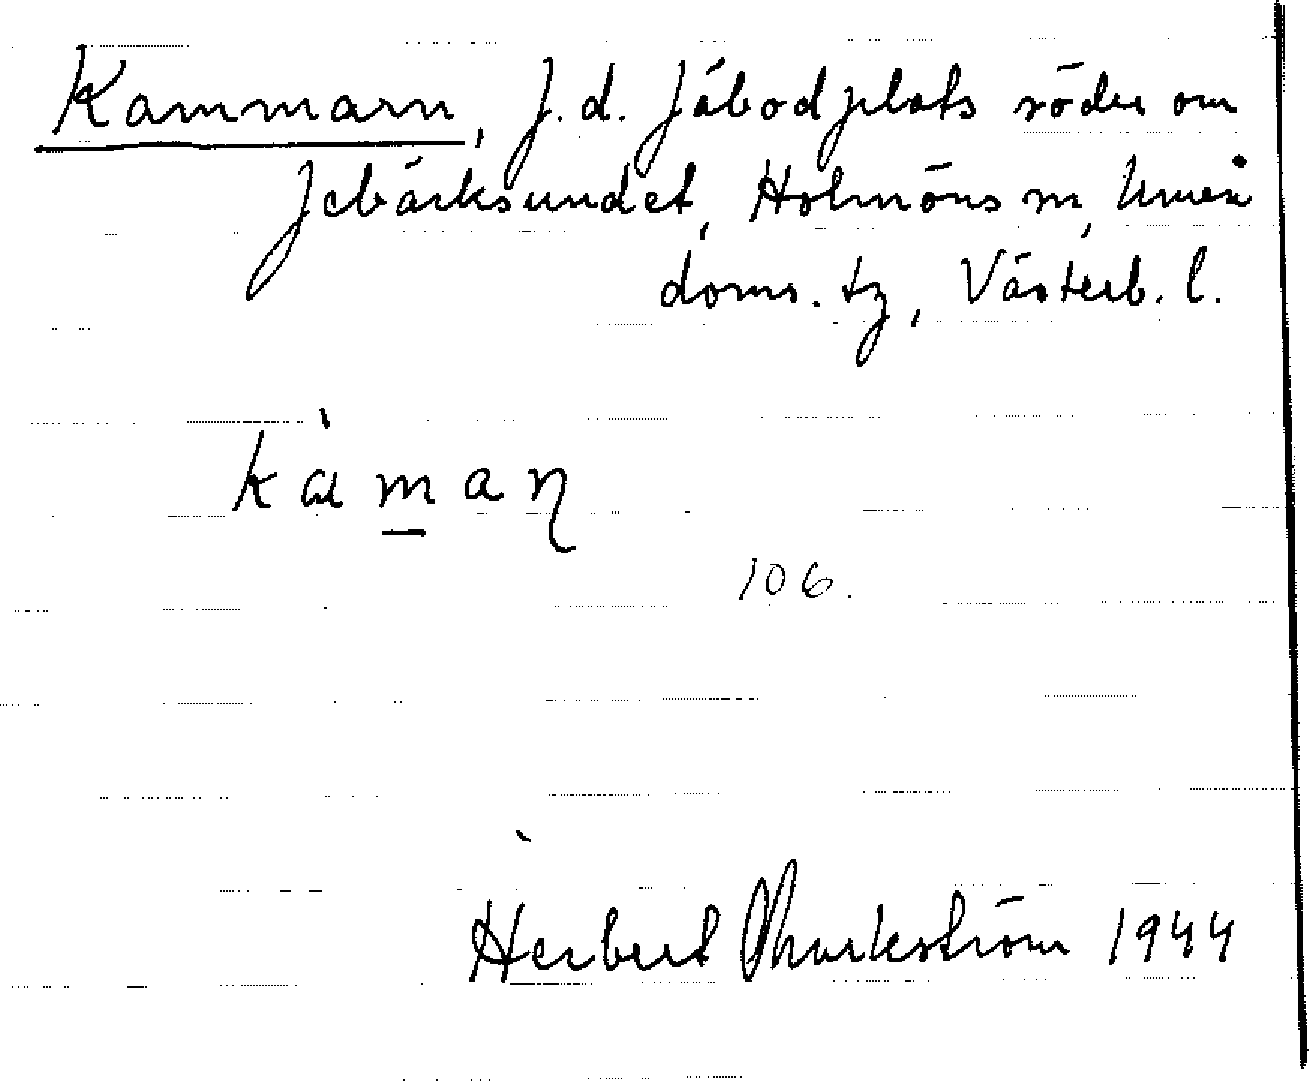 Kammarn, f.d. fäbodplats söder om
Jebäcksundet, Holmöns sn, Umeå
doms. tg, Västerb. l.
kàmaɳ
106.
Herbert Markström 1944